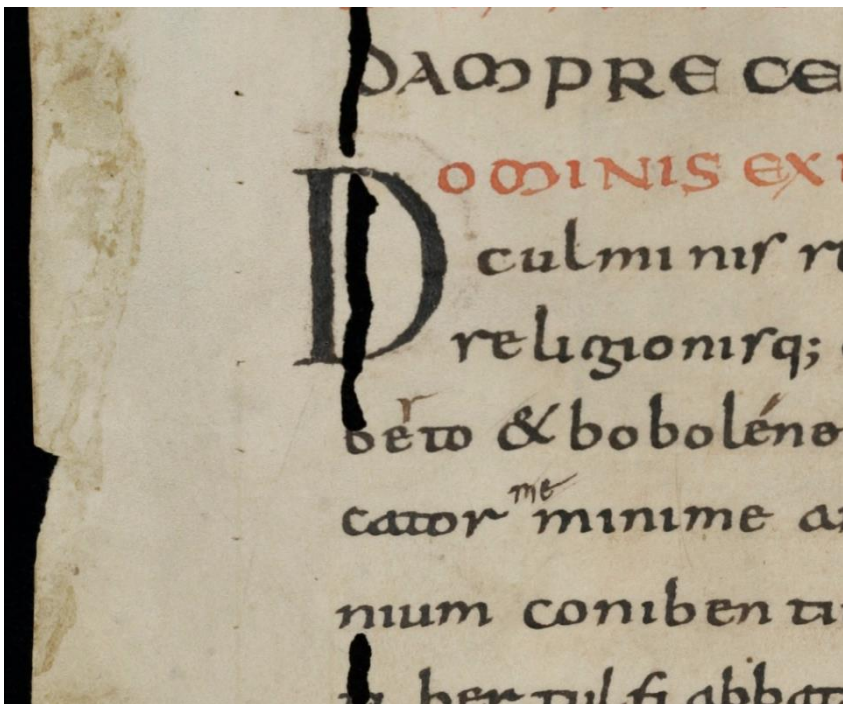 DAM PRE CE
DOMINIS EXI
culminis re
religionisq;
berto & boboleno
cator me minime
nium coniben ti
bertulfi abbat